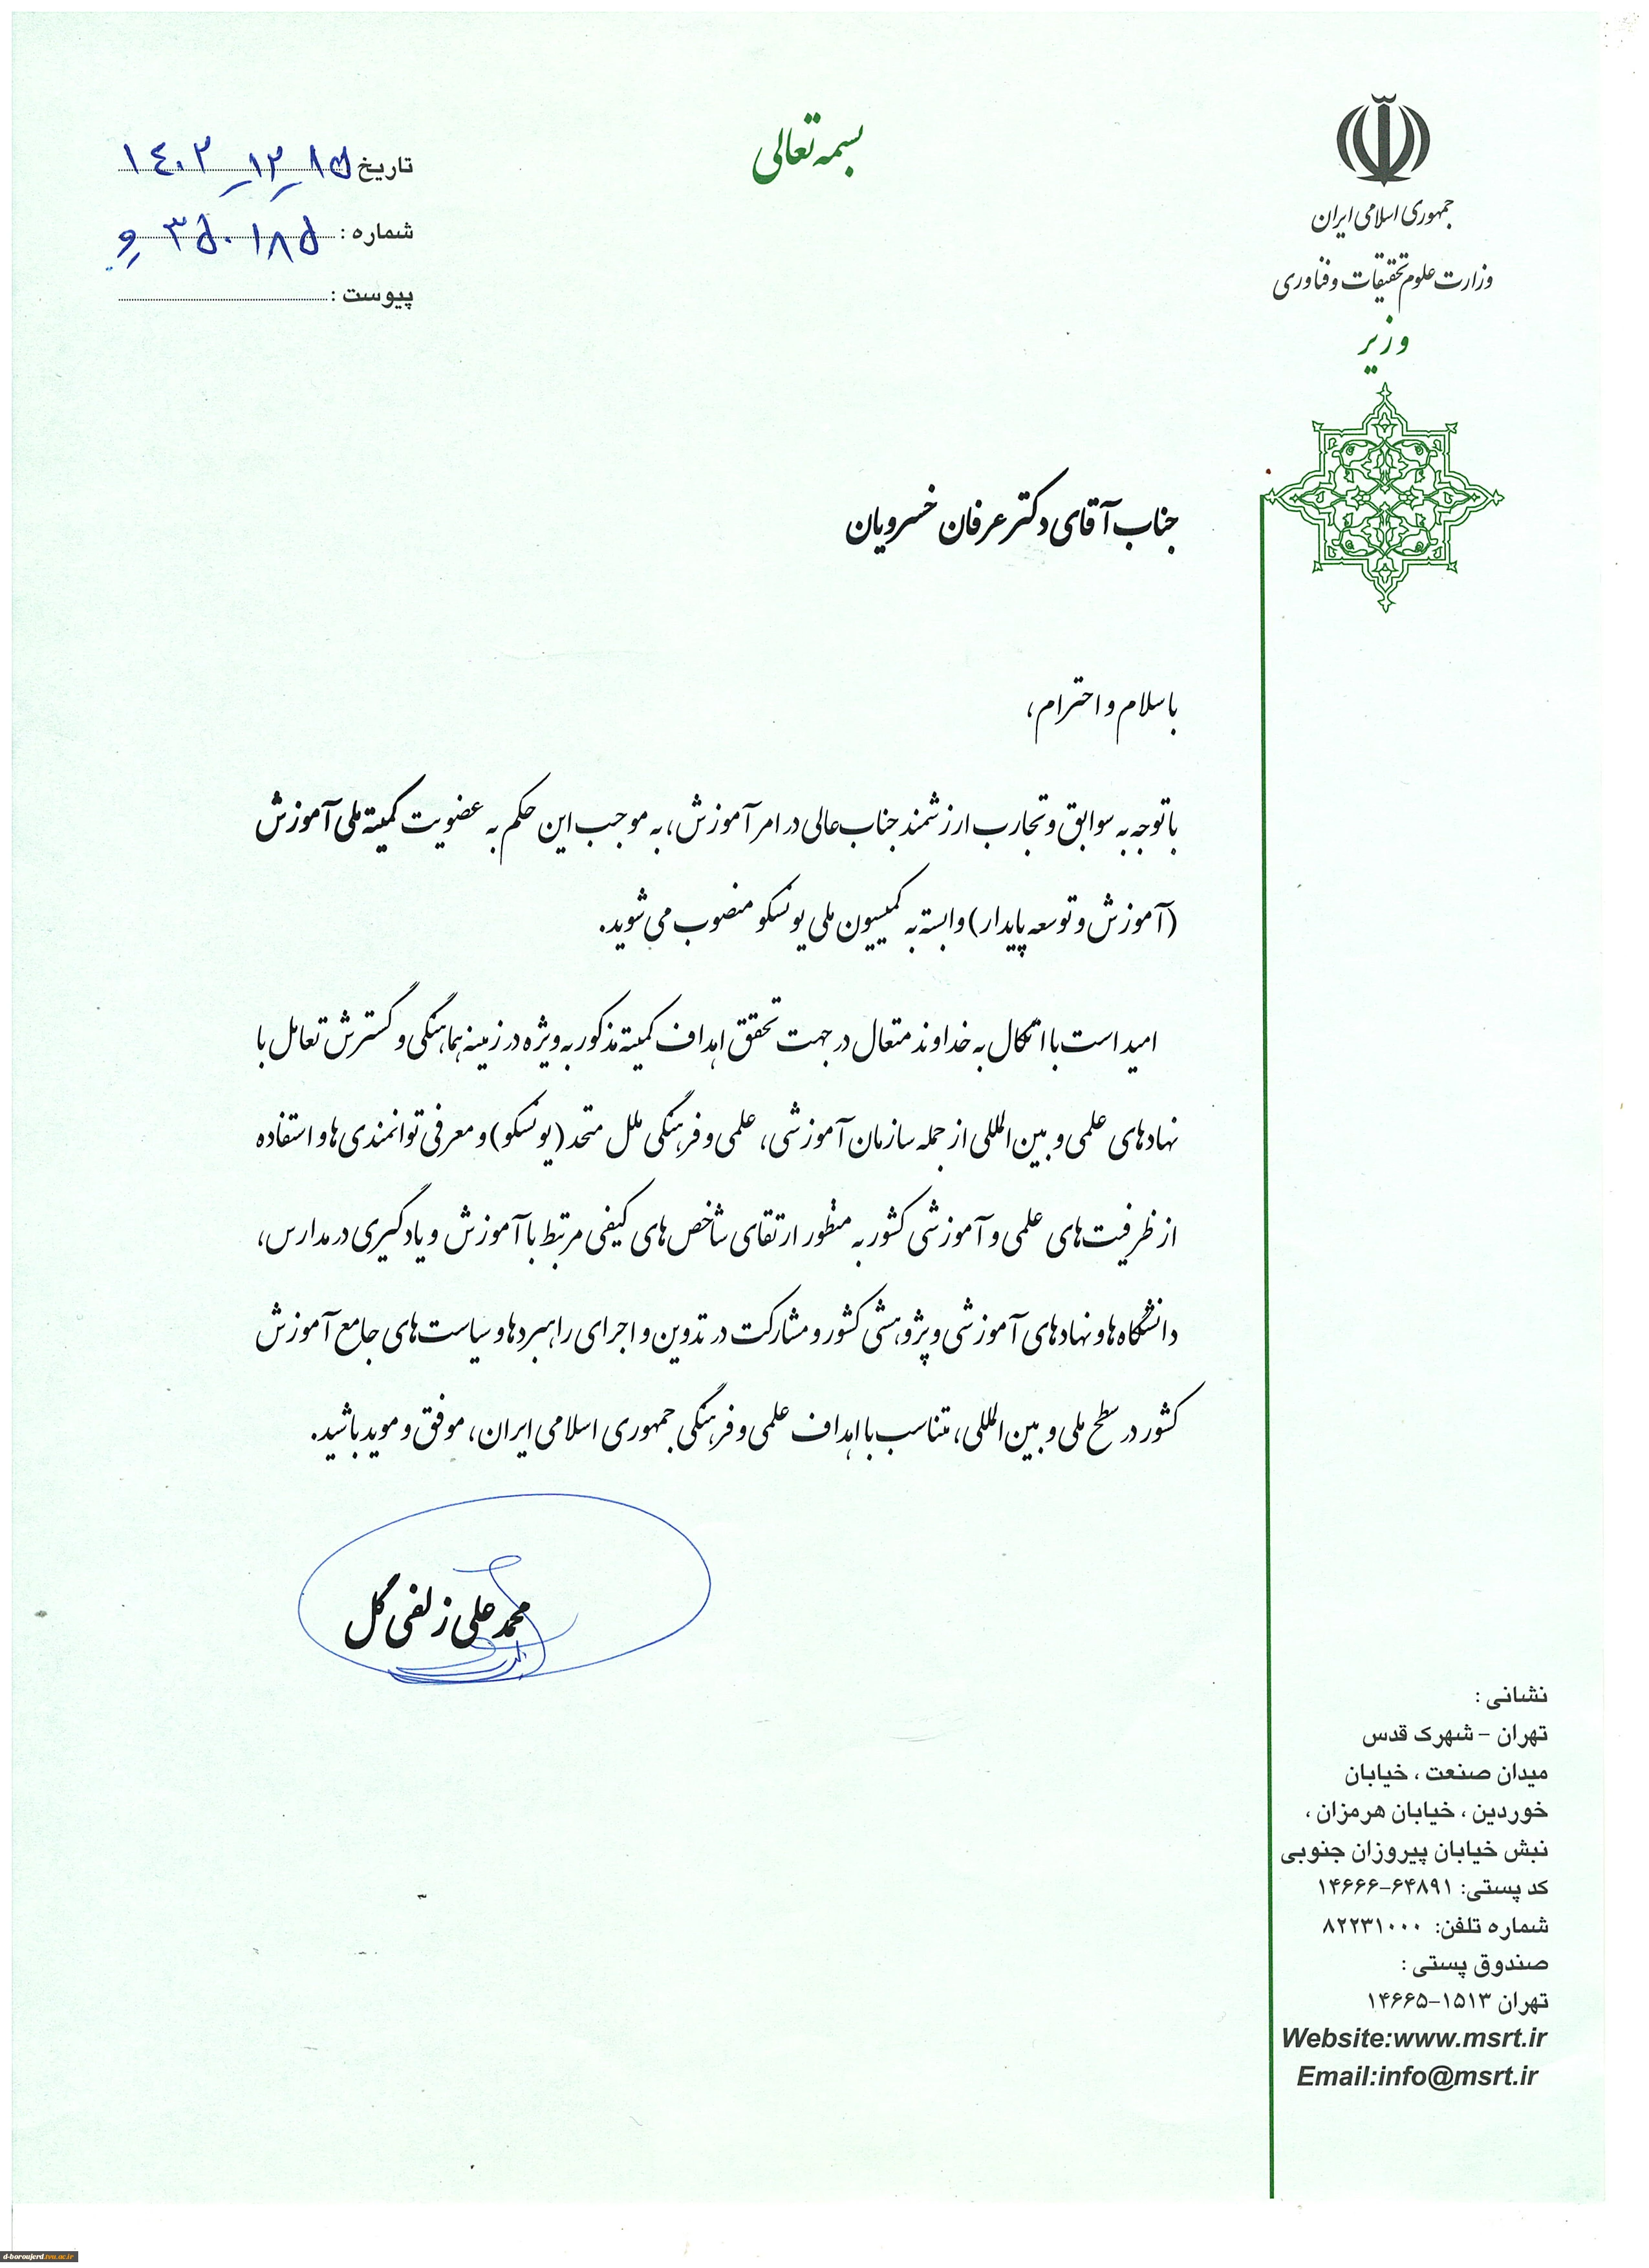 بسمه تعالی
جمهوری اسلامی ایران
وزارت علوم تحقیقات و فناوری
وزیر
تاریخ ۱۴۰۲-۱۲-۱۵
شماره : ۳۵۰۱۸۵ و
پیوست :
جناب آقای دکتر عرفان خسرویان
با سلام و احترام،
با توجه به سوابق و تجارب ارزشمند جناب‌عالی در امر آموزش، به موجب این حکم به عضویت کمیته ملی آموزش
(آموزش و توسعه پایدار) وابسته به کمیسیون ملی یونسکو منصوب می‌شوید.
امید است با اتکال به خداوند متعال در جهت تحقق اهداف کمیته مذکور به ویژه در زمینه هماهنگی و گسترش تعامل با
نهادهای علمی و بین‌المللی از جمله سازمان آموزشی، علمی و فرهنگی ملل متحد (یونسکو) و معرفی توانمندی‌ها و استفاده
از ظرفیت‌های علمی و آموزشی کشور به منظور ارتقای شاخص‌های کیفی مرتبط با آموزش و یادگیری در مدارس،
دانشگاه‌ها و نهادهای آموزشی و پژوهشی کشور و مشارکت در تدوین و اجرای راهبردها و سیاست‌های جامع آموزش
کشور در سطح ملی و بین‌المللی، متناسب با اهداف علمی و فرهنگی جمهوری اسلامی ایران، موفق و موید باشید.
محمد علی زلفی گل
نشانی :
تهران – شهرک قدس
میدان صنعت ، خیابان
خوردین ، خیابان هرمزان ،
نبش خیابان پیروزان جنوبی
کد پستی: ۶۴۸۹۱-۱۴۶۶۶
شماره تلفن: ۸۲۲۳۱۰۰۰
صندوق پستی :
تهران ۱۵۱۳-۱۴۶۶۵
Website:www.msrt.ir
Email:info@msrt.ir
d-boroujerd.tvu.ac.ir